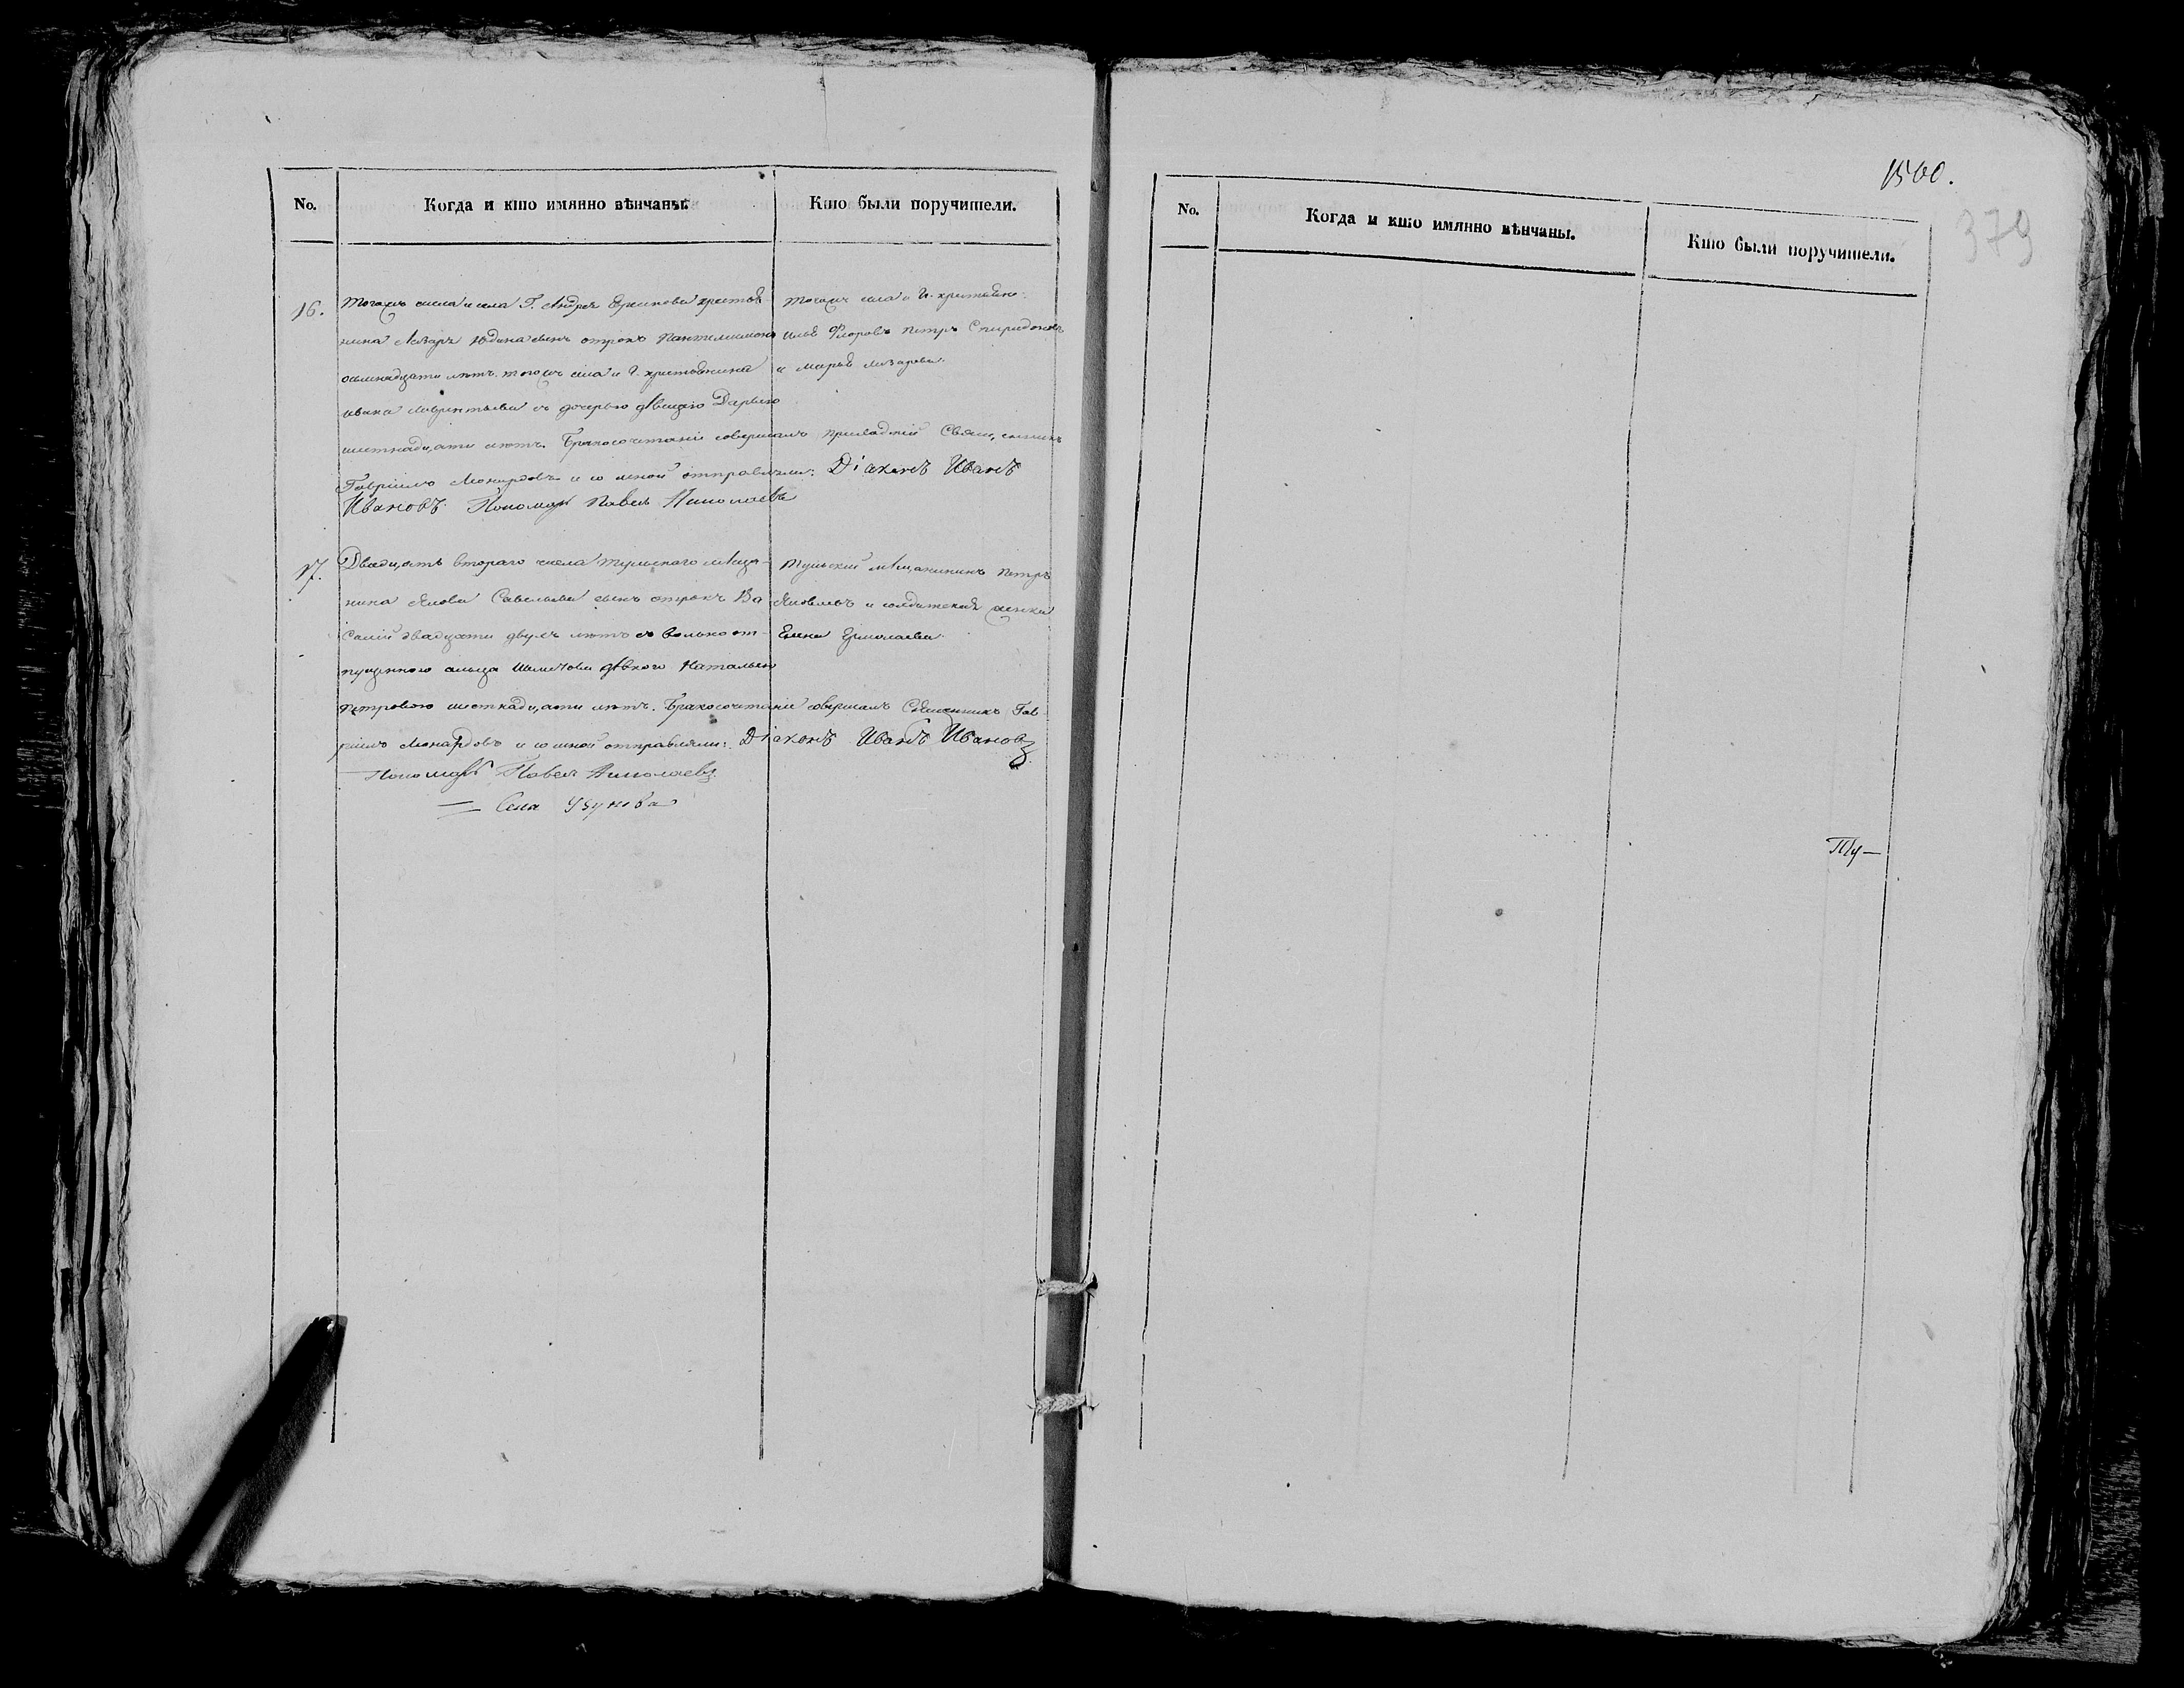 No. Когда и кто имянно вѣнчаны. Кто были поручители.
16. Тогожъ числа и села Г. Андрея христья-
нина Лазаря Юдина сынъ отрокъ Пантелимонъ
осьмнадцати лѣтъ. тогожъ села и Г. христьянина
ивана лаврентьева съ дочерью дѣвицею Дарьею
шетнадцати лѣтъ. Бракосочетаніе совершалъ Священникъ
Гавріилъ и со мной отправляли: Діаконъ Иванъ
Ивановъ. Пономарь Павелъ Николаевъ
Тогожъ села и Г. христьяне:
илья Флоровъ петръ Спиридоновъ
и марья лазарева.
17. Двадцать втораго числа Тульскаго мѣща-
нина Якова Савельева сынъ отрокъ Ва
силій двадцати двухъ лѣтъ съ вольноот-
пущенною дѣвкою Натальею
петровою шетнадцати лѣтъ. Бракосочетаніе совершалъ Священникъ Гав-
ріилъ и со мной отправляли: Діаконъ Иванъ Ивановъ
Пономарь Павелъ Николаевъ
Тульский мѣщанинъ петръ
Яковлевъ и солдатская женка
Елена Ермолаева.
Села
1560.
379
No. Когда и кто имянно вѣнчаны. Кто были поручители.
Ту—